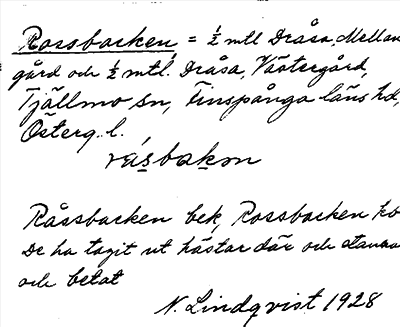 Rossbacken, = ½ mtl Dråsa, Mellan
gård och ½ mtl. Dråsa, Västergård,
Tjällmo sn, Finspånga läns hd,
Österg. l.
råsbakən
Råssbacken bek, Rossbacken ko
De ha tagit ut hästar där och stanna
och betat
N. Lindqvist 1928